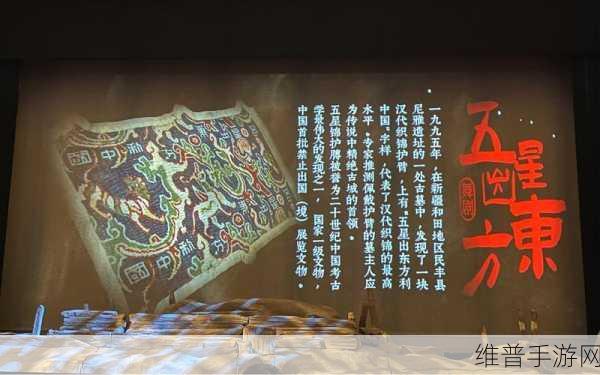 五星出東方
舞剧
一九九五年,在新疆和田地区民丰县
尼雅遗址的一处古墓中,发现了一块
汉代织锦护臂,上有“五星出东方利
中国”字样,代表了汉代织锦的最高
水平,专家推测佩戴护臂的墓主人应
为传说中精绝古城的首领。
五星锦护臂被誉为二十世纪中国考古
学最伟大的发现之一,国家一级文物,
中国首批禁止出国(境)展览文物。
维普手游网